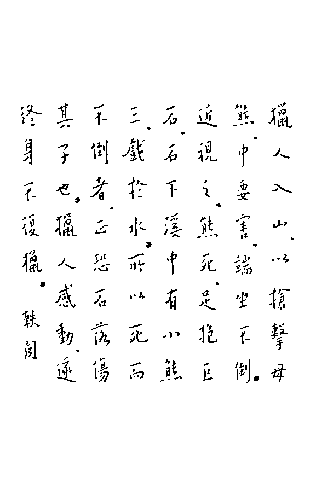 獵人入山，以槍擊母
熊，中要害，端坐不倒。
近視之，熊死，足抱巨
石，石下溪中有小熊
三，戲於水。所以死而
不倒者，正恐石落傷
其子也。獵人感動，遂
終身不復獵。 軼聞